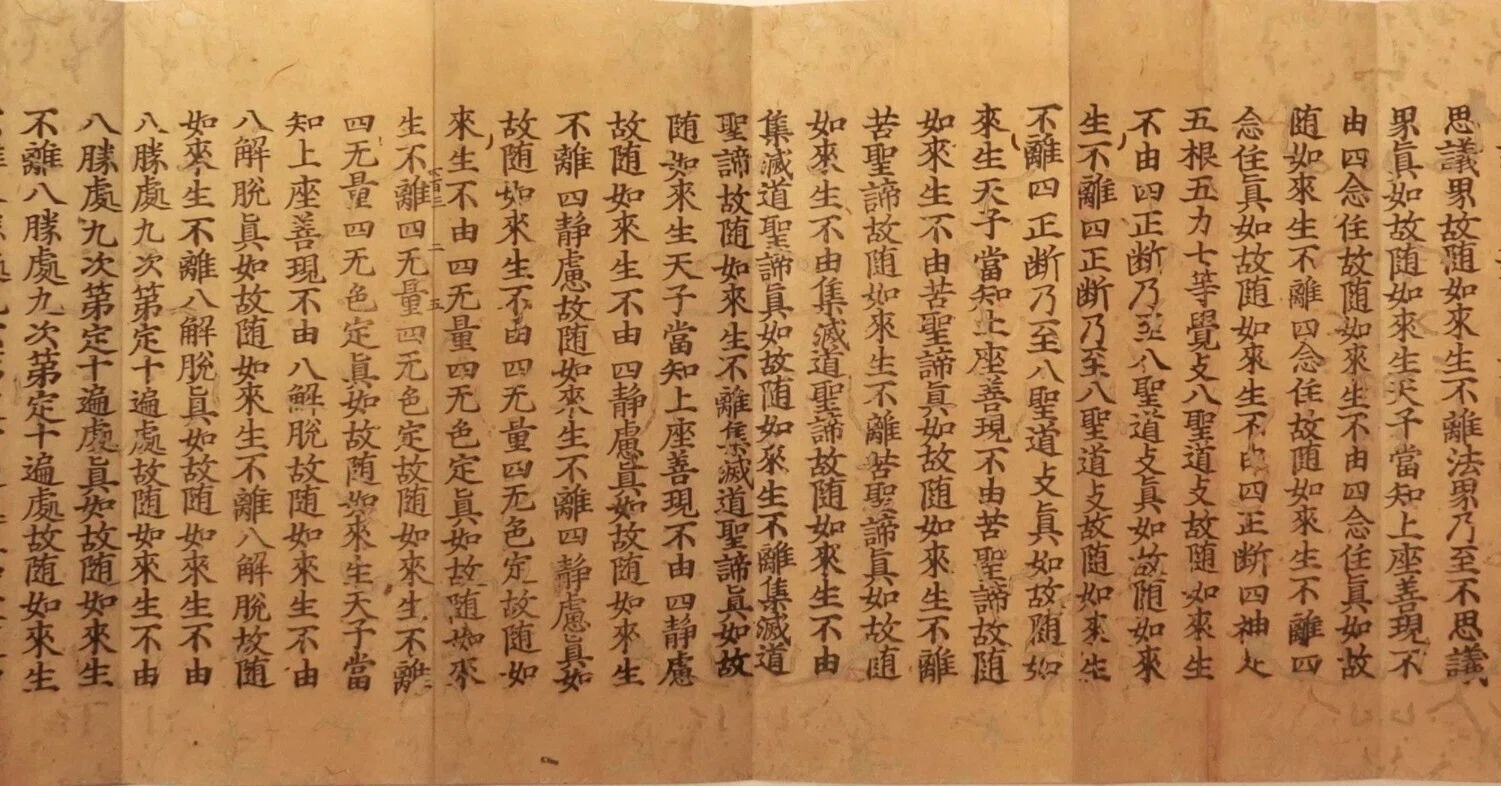 思議界故随如來生不離法界乃至不思議
界眞如故随如來生天子當知上座善現不
由四念住故随如來生不由四念住眞如故
随如來生不離四念住故随如來生不離四
念住眞如故随如來生不由四正断四神足
五根五力七等覺支八聖道支故随如來生
不由四正断乃至八聖道支眞如故随如來
生不離四正断乃至八聖道支故随如來生
不離四正断乃至八聖道支眞如故随如
來生天子當知上座善現不由苦聖諦故随
如來生不由苦聖諦眞如故随如來生不離
苦聖諦故随如來生不離苦聖諦眞如故随
如來生不由集滅道聖諦故随如來生不由
集滅道聖諦眞如故随如來生不離集滅道
聖諦故随如來生不離集滅道聖諦眞如故
随如來生天子當知上座善現不由四静慮
故随如來生不由四静慮眞如故随如來生
不離四静慮故随如來生不離四静慮眞如
故随如來生不由四无量四无色定故随如
來生不由四无量四无色定眞如故随如來
生不離四无量四无色定故随如來生不離
四无量四无色定眞如故随如來生天子當
知上座善現不由八解脫故随如來生不由
八解脫眞如故随如來生不離八解脫故随
如來生不離八解脫眞如故随如來生不由
八勝處九次第定十遍處故随如來生不由
八勝處九次第定十遍處眞如故随如來生
不離八勝處九次第定十遍處故随如來生